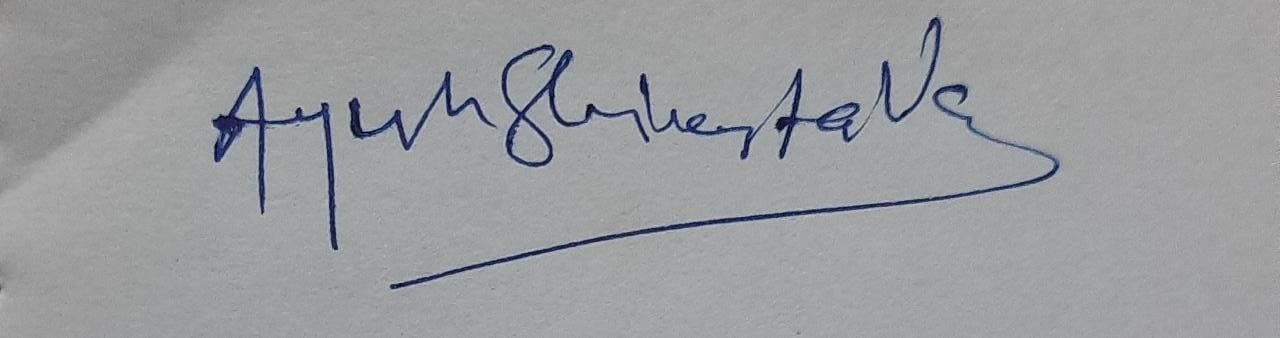 Ayush Shrivastava